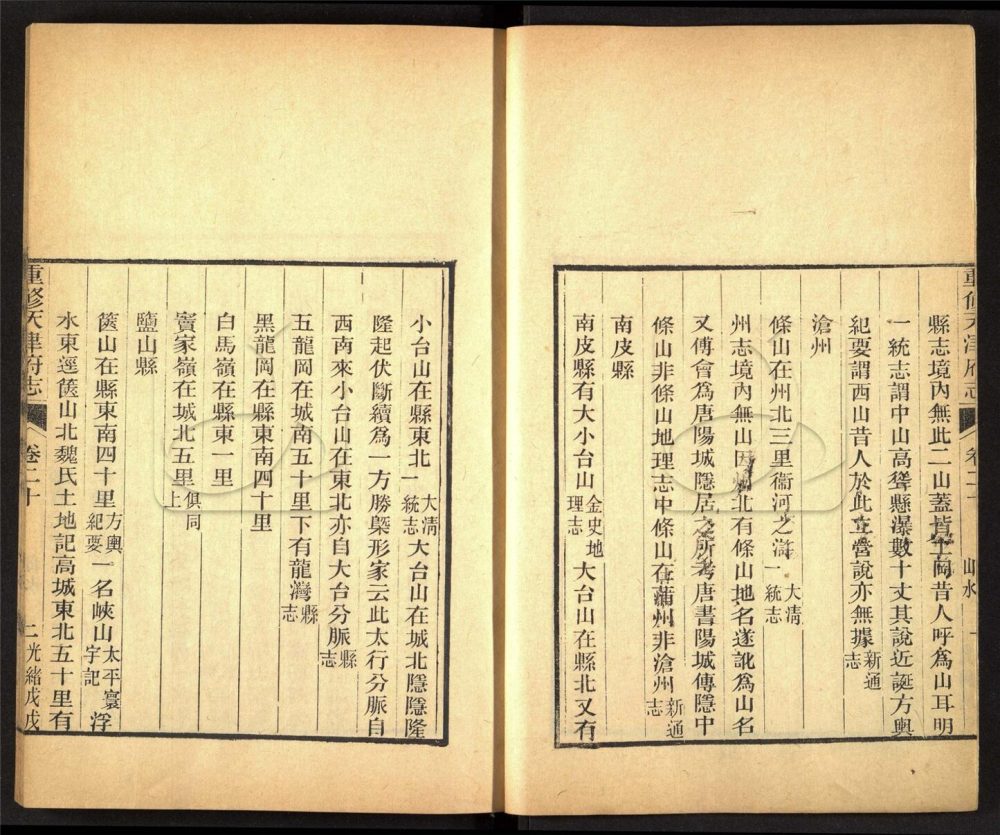 重修天津府志 卷二十 山水 一
縣志境內無此二山蓋皆土岡昔人呼爲山耳明
一統志謂中山高聳懸瀑數十丈其說近誕方輿
紀要謂西山昔人於此立營說亦無據新通志
滄州
條山在州北三里衞河之滸大淸一統志
州志境內無山因州北有條山地名遂訛爲山名
又傅會爲唐陽城隱居之所考唐書陽城傳隱中
條山非條山地理志中條山在蒲州非滄州新通志
南皮縣
南皮縣有大小台山金史地理志大台山在縣北又有
小台山在縣東北大淸一統志大台山在城北隱隱隆
隆起伏斷續爲一方勝槩形家云此太行分脈自
西南來小台山在東北亦自大台分脈縣志
五龍岡在城南五十里下有龍灣縣志
黑龍岡在縣東南四十里
白馬嶺在縣東一里
竇家嶺在城北五里俱同上
鹽山縣
篋山在縣東南四十里方輿紀要一名峽山太平寰宇記浮
水東逕篋山北魏氏土地記高城東北五十里有
重修天津府志 卷二十 二 光緖戊戌